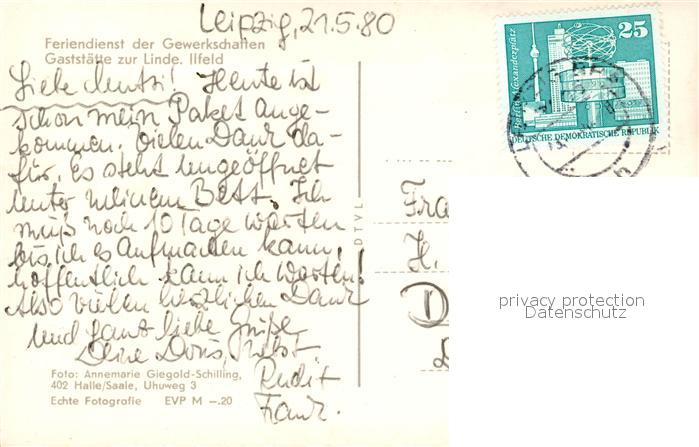 Leipzig, 21.5.80
Feriendienst der Gewerkschaften
Gaststätte zur Linde. Ilfeld
Liebe Mutti! Heute ist
schon mein Paket ange-
kommen. Vielen Dank da-
für. Es steht ungeöffnet
unter meinem Bett. Ich
muß noch 10 Tage warten
bis ich es Aufmachen kann,
hoffentlich kann ich warten!
Also vielen herzlichen Dank
und ganz liebe Grüße
Deine Doris, nebst
Rudi+
Frank.
Foto: Annemarie Giegold-Schilling,
402 Halle/Saale, Uhuweg 3
Echte Fotografie EVP M –.20
DTVL
25
Berlin, Alexanderplatz
DEUTSCHE DEMOKRATISCHE REPUBLIK
Fra
H.
D
privacy protection
Datenschutz